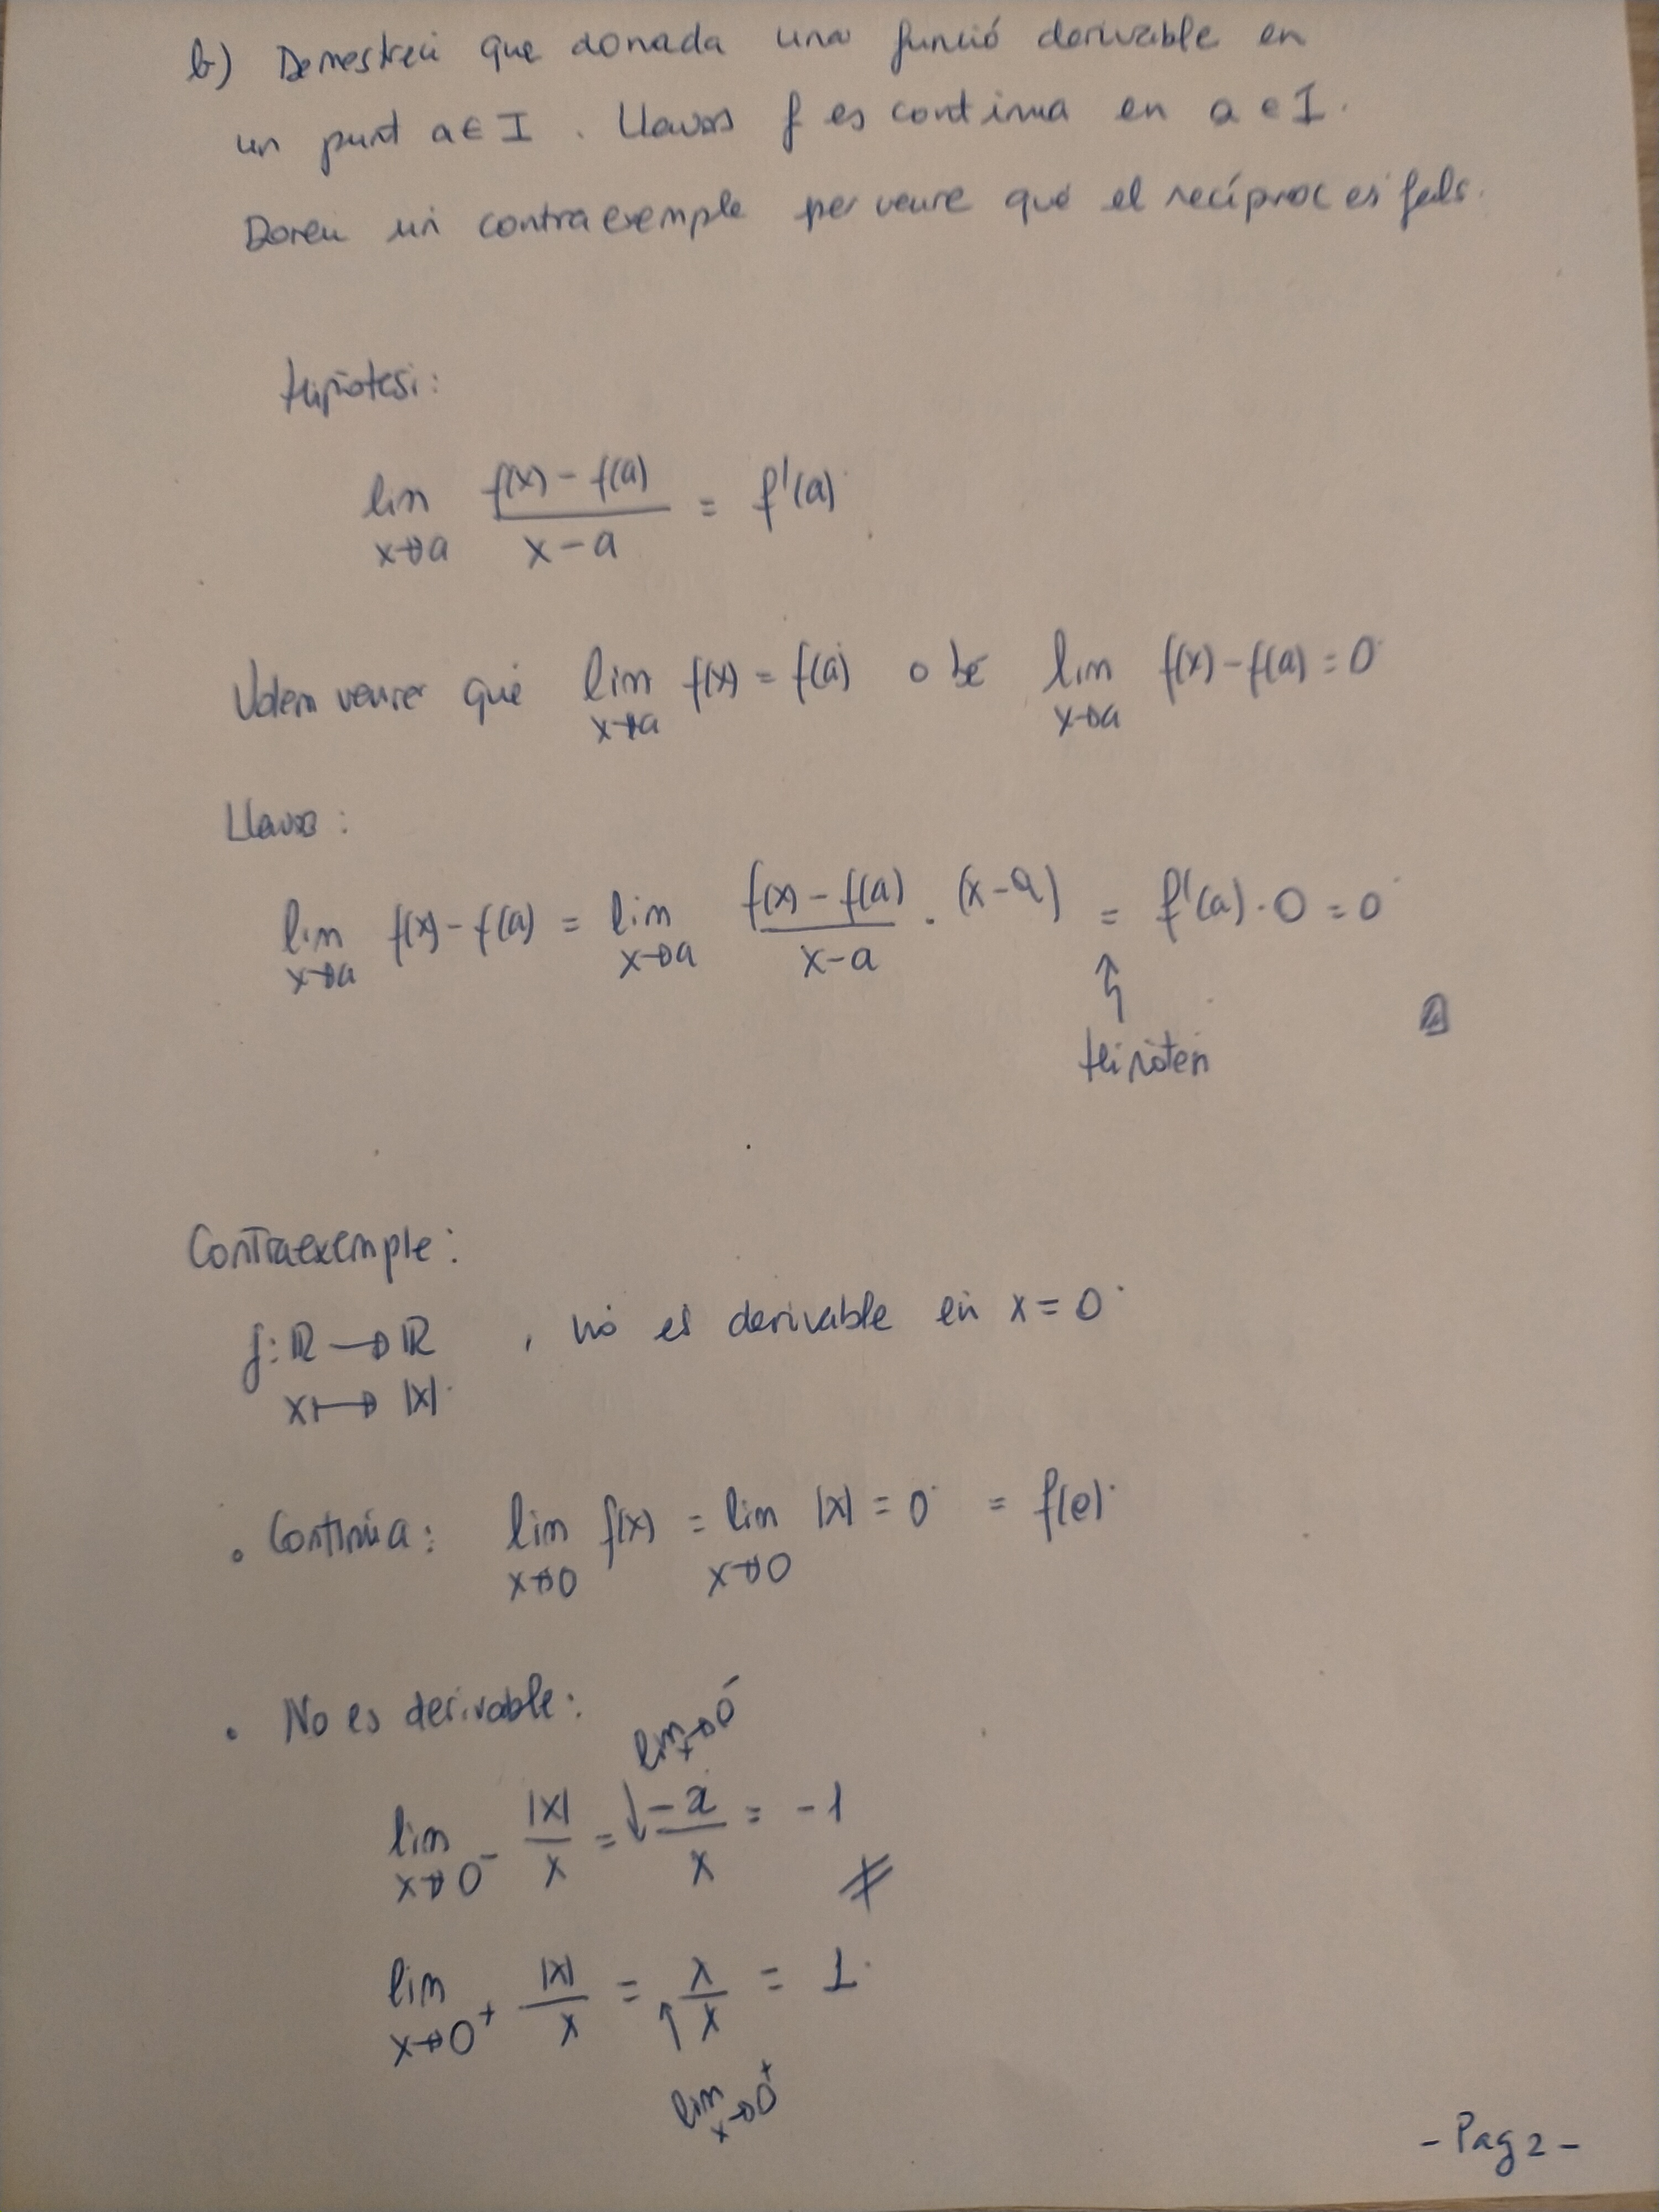 b) Demostreu que donada una funció derivable en
un punt a ∈ I. Llavors f es continua en a ∈ I.
Doneu un contraexemple per veure que el recíproc es fals.
Hipòtesi:
lim x→a (f(x) - f(a)) / (x - a) = f'(a)
Volem veure que lim x→a f(x) = f(a) o bé lim x→a f(x) - f(a) = 0
Llavors:
lim x→a f(x) - f(a) = lim x→a (f(x) - f(a)) / (x - a) · (x - a) = f'(a) · 0 = 0
↑
Hipòtesi
Contraexemple:
f: ℝ → ℝ , no es derivable en x = 0
x ↦ |x|
• Continua: lim x→0 f(x) = lim x→0 |x| = 0 = f(0)
• No es derivable:
lim x→0⁻
lim x→0⁻ |x| / x = ↓ -x / x = -1
≠
lim x→0⁺ |x| / x = ↑ x / x = 1
lim x→0⁺
- Pag 2 -